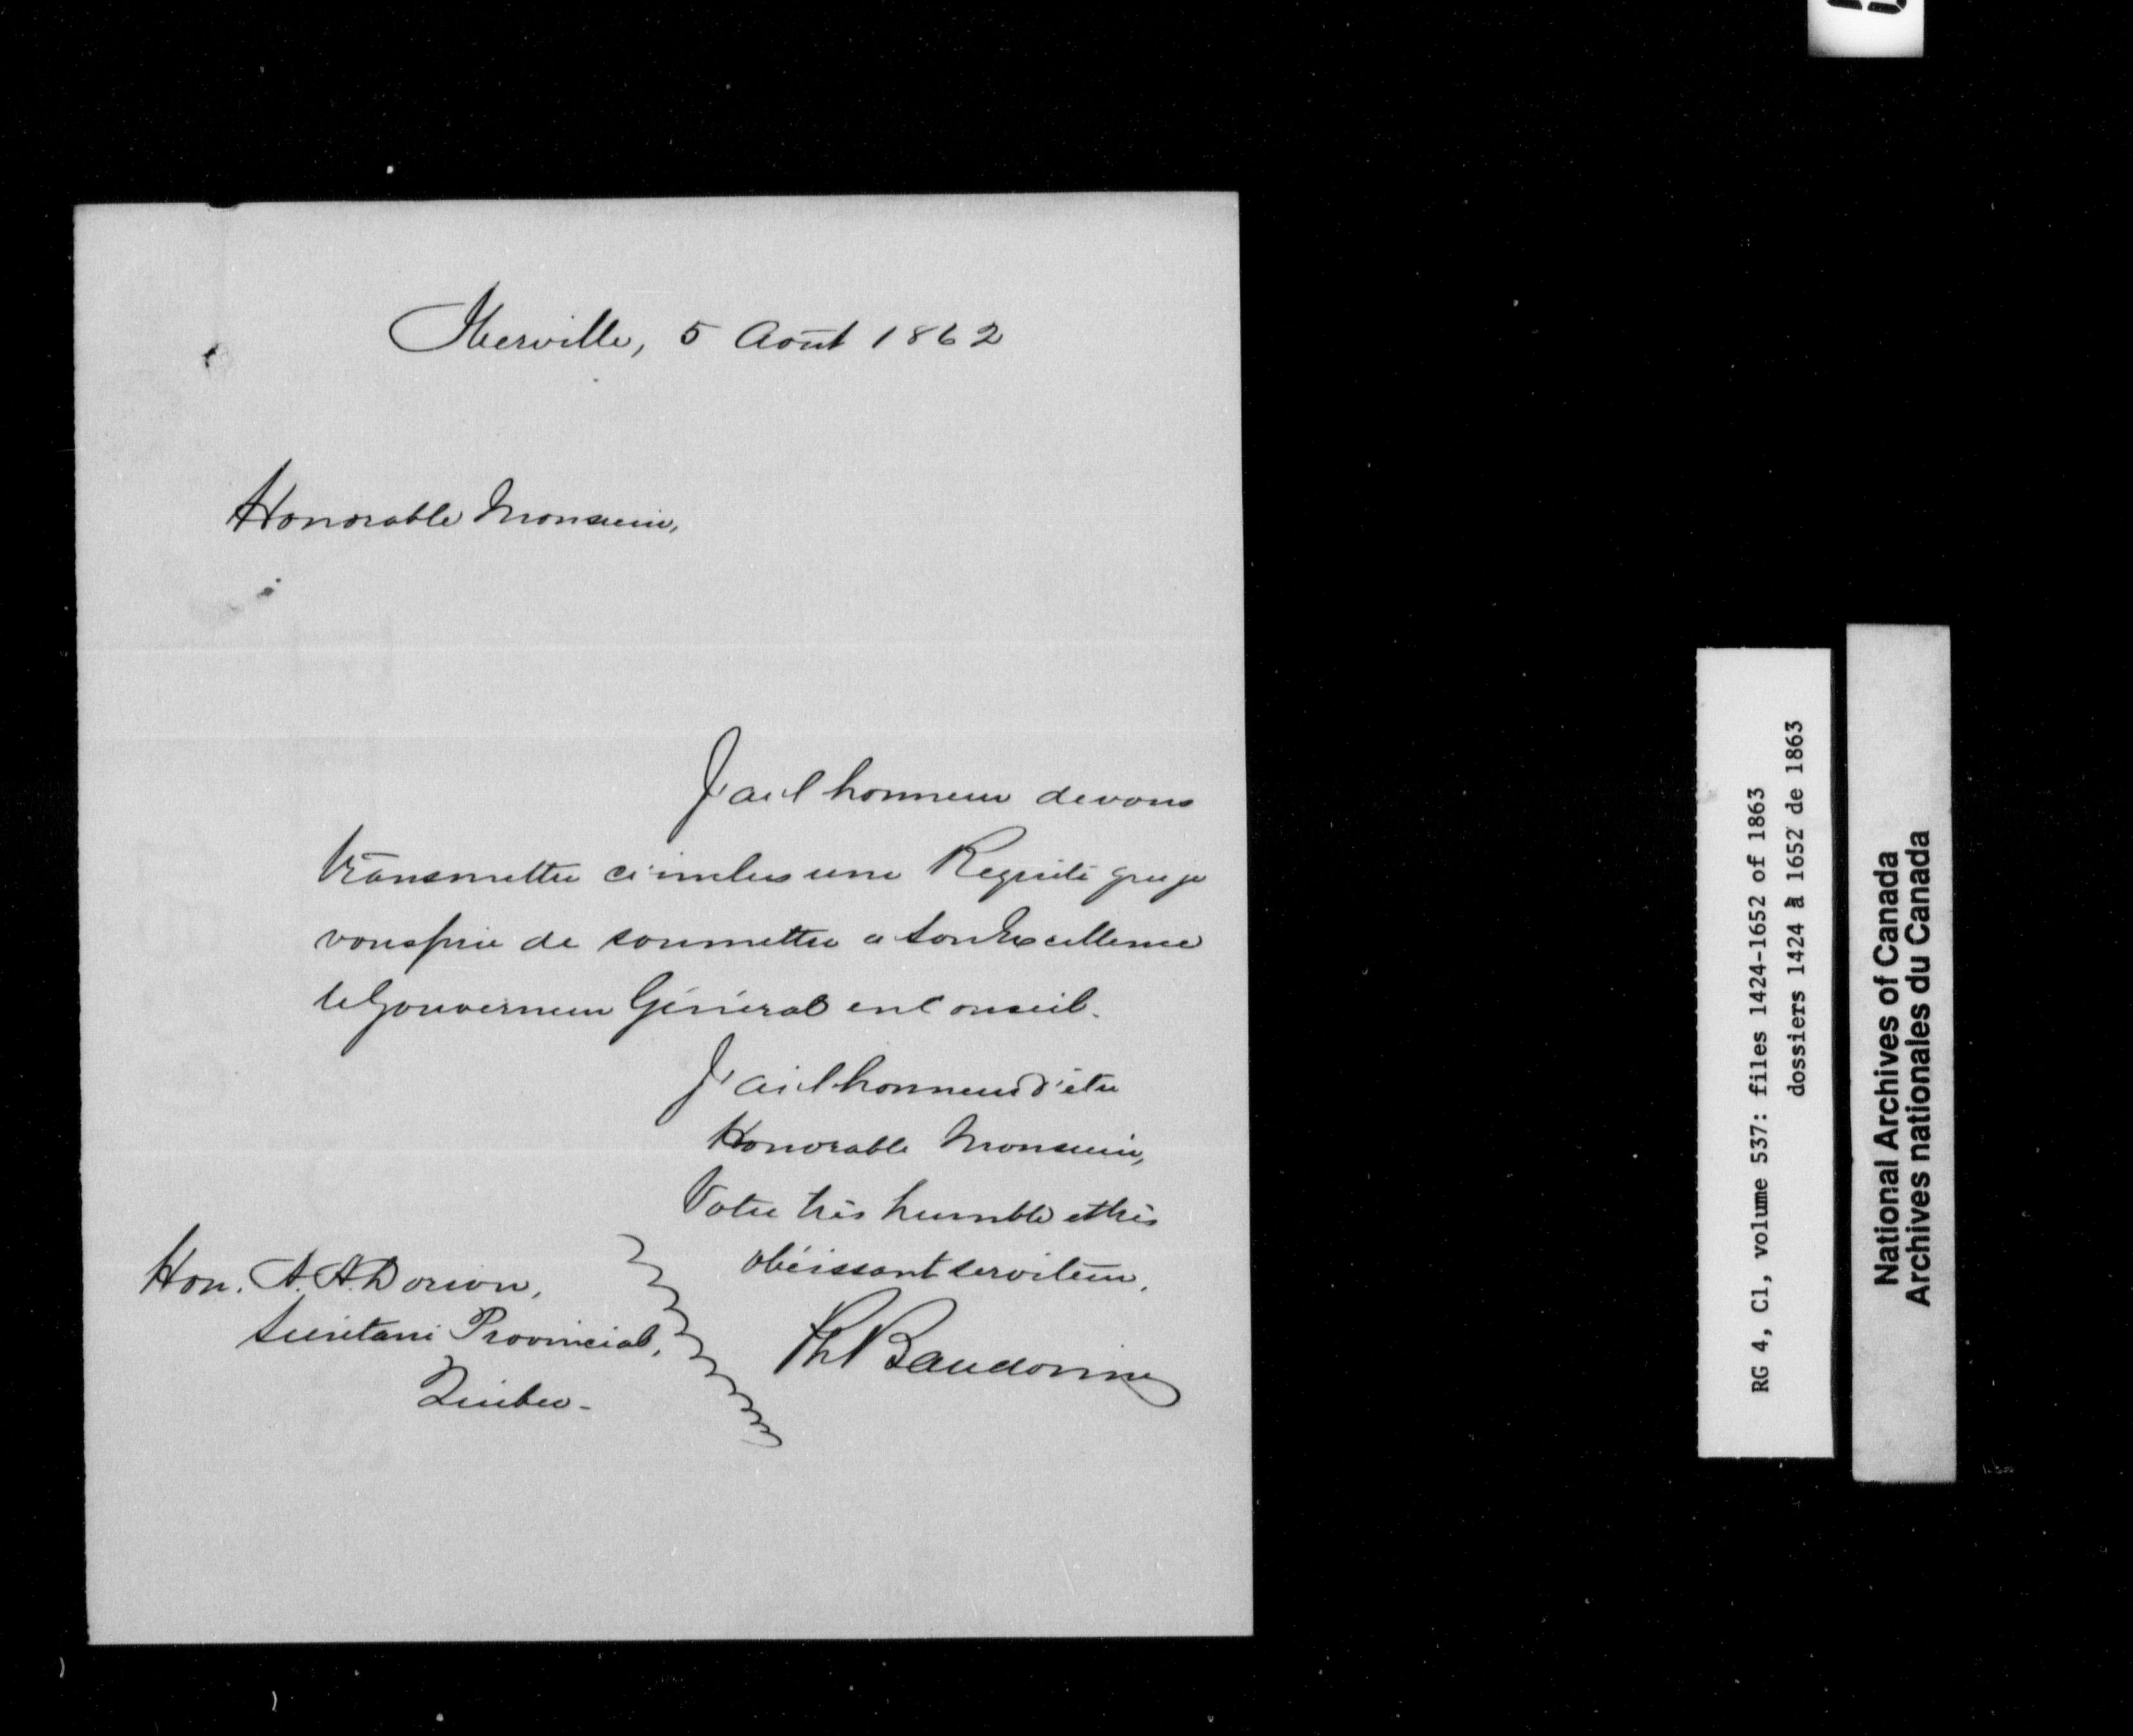 Iberville, 5 Août 1862
Honorable Monsieur,
J'ai l'honneur de vous
transmettre ci inclus une Requête que je
vous prie de soumettre a Son Excellence
le Gouverneur Général en Conseil.
J'ai l'honneur d'être
Honorable Monsieur,
Votre très humble et très
obéissant serviteur.
Ph Baudouin
Hon. A. A. Dorion,
Secrétaire Provincial,
Québec -
RG 4, C1, volume 537: files 1424-1652 of 1863
dossiers 1424 à 1652 de 1863
National Archives of Canada
Archives nationales du Canada